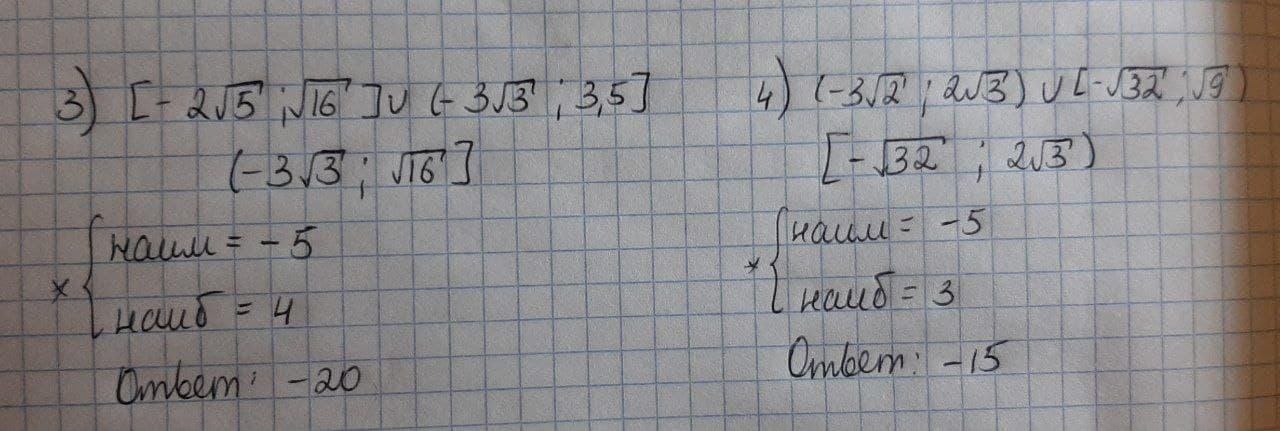 3) [-2√5 ; √16] ∪ (-3√3 ; 3,5]
(-3√3 ; √16]
× { наим = -5
наиб = 4
Ответ: -20
4) (-3√2 ; 2√3) ∪ [-√32 ; √9)
[-√32 ; 2√3)
× { наим = -5
наиб = 3
Ответ: -15